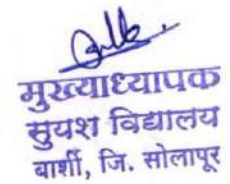 मुख्याध्यापक
सुयश विद्यालय
बार्शी, जि. सोलापूर